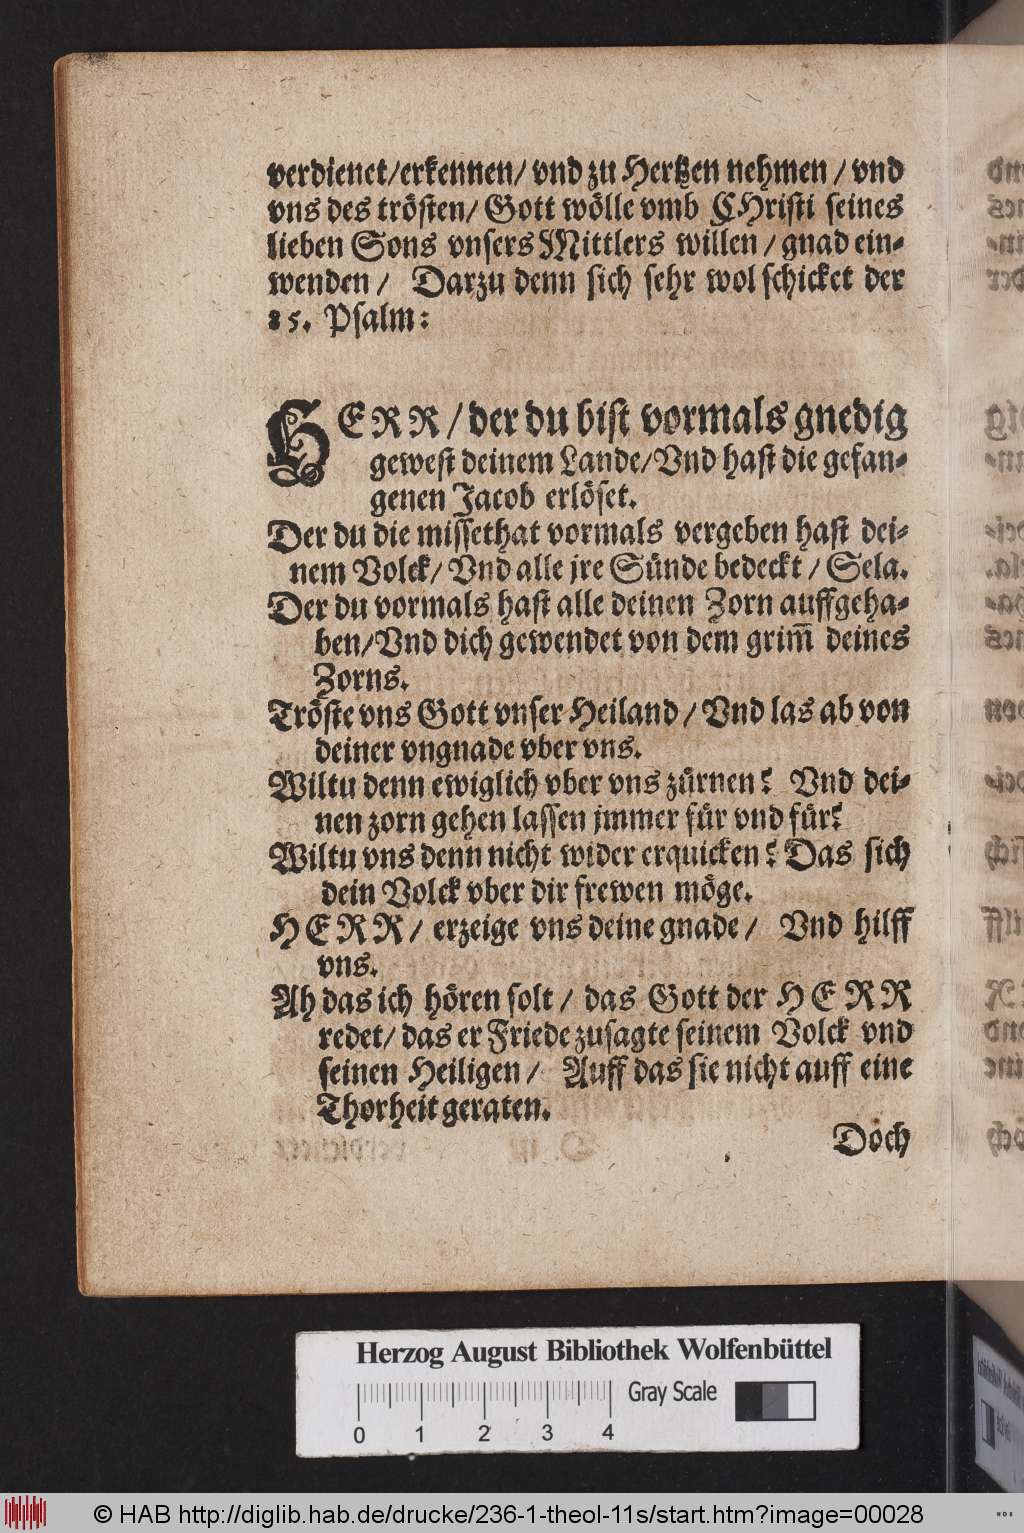 verdienet/erkennen/ vnd zu Hertzen nehmen / vnd
vns des trösten/ Gott wölle vmb CHristi seines
lieben Sons vnsers Mittlers willen / gnad ein-
wenden / Darzu denn sich sehr wol schicket der
85. Psalm:
HERR / der du bist vormals gnedig
gewest deinem Lande/Vnd hast die gefan-
genen Jacob erlöset.
Der du die missethat vormals vergeben hast dei-
nem Volck/ Vnd alle jre Sünde bedeckt / Sela.
Der du vormals hast alle deinen Zorn auffgeha-
ben/Vnd dich gewendet von dem grim̃ deines
Zorns.
Tröste vns Gott vnser Heiland / Vnd las ab von
deiner vngnade vber vns.
Wiltu denn ewiglich vber vns zürnen? Vnd dei-
nen zorn gehen lassen jmmer für vnd für?
Wiltu vns denn nicht wider erquicken? Das sich
dein Volck vber dir frewen möge.
HERR / erzeige vns deine gnade / Vnd hilff
vns.
Ah das ich hören solt / das Gott der HERR
redet/ das er Friede zusagte seinem Volck vnd
seinen Heiligen / Auff das sie nicht auff eine
Thorheit geraten.
Doch
Herzog August Bibliothek Wolfenbüttel
Gray Scale
0 1 2 3 4
© HAB http://diglib.hab.de/drucke/236-1-theol-11s/start.htm?image=00028